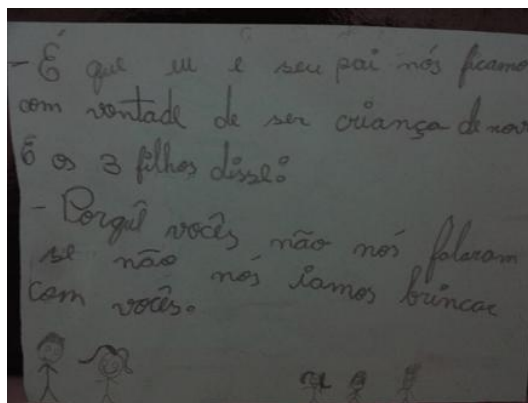 - É que eu e seu pai nós ficamo
com vontade de ser criança de nov
E os 3 filhos disse:
- Porquê vocês não nós falaram
se não nós iamos brincar
com vocês.